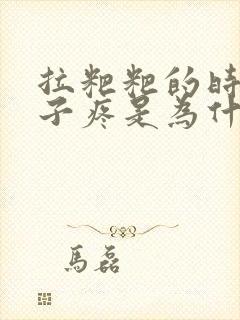 拉粑粑的時
子疼是為什
馬磊